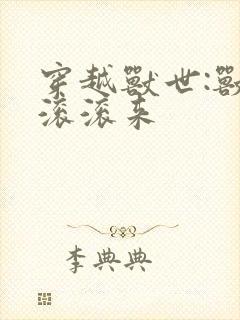 穿越獸世:獸
滚滚来
李典典